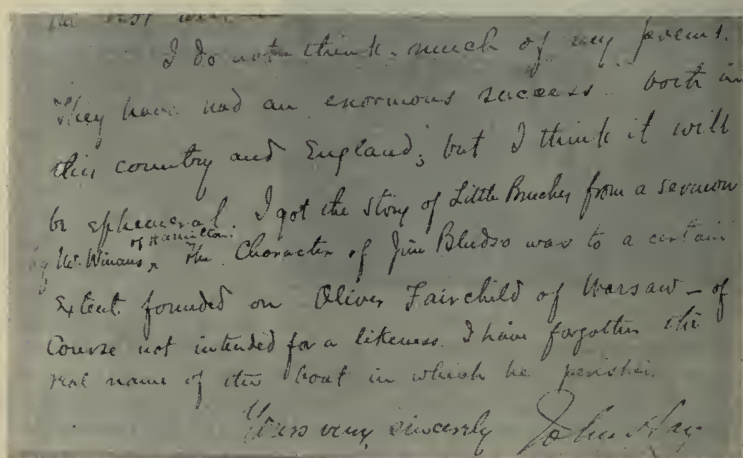 I do not think much of my poems.
They have had an enormous success both in
this country and England; but I think it will
be ephemeral. I got the story of Little Breeches from a sermon
of Hamilton.
by Mr. Winans, The Character of Jim Bludso was to a certain
extent founded on Oliver Fairchild of Warsaw — of
course not intended for a likeness. I have forgotten the
real name of the boat in which he perished.
Yours very sincerely John Hay